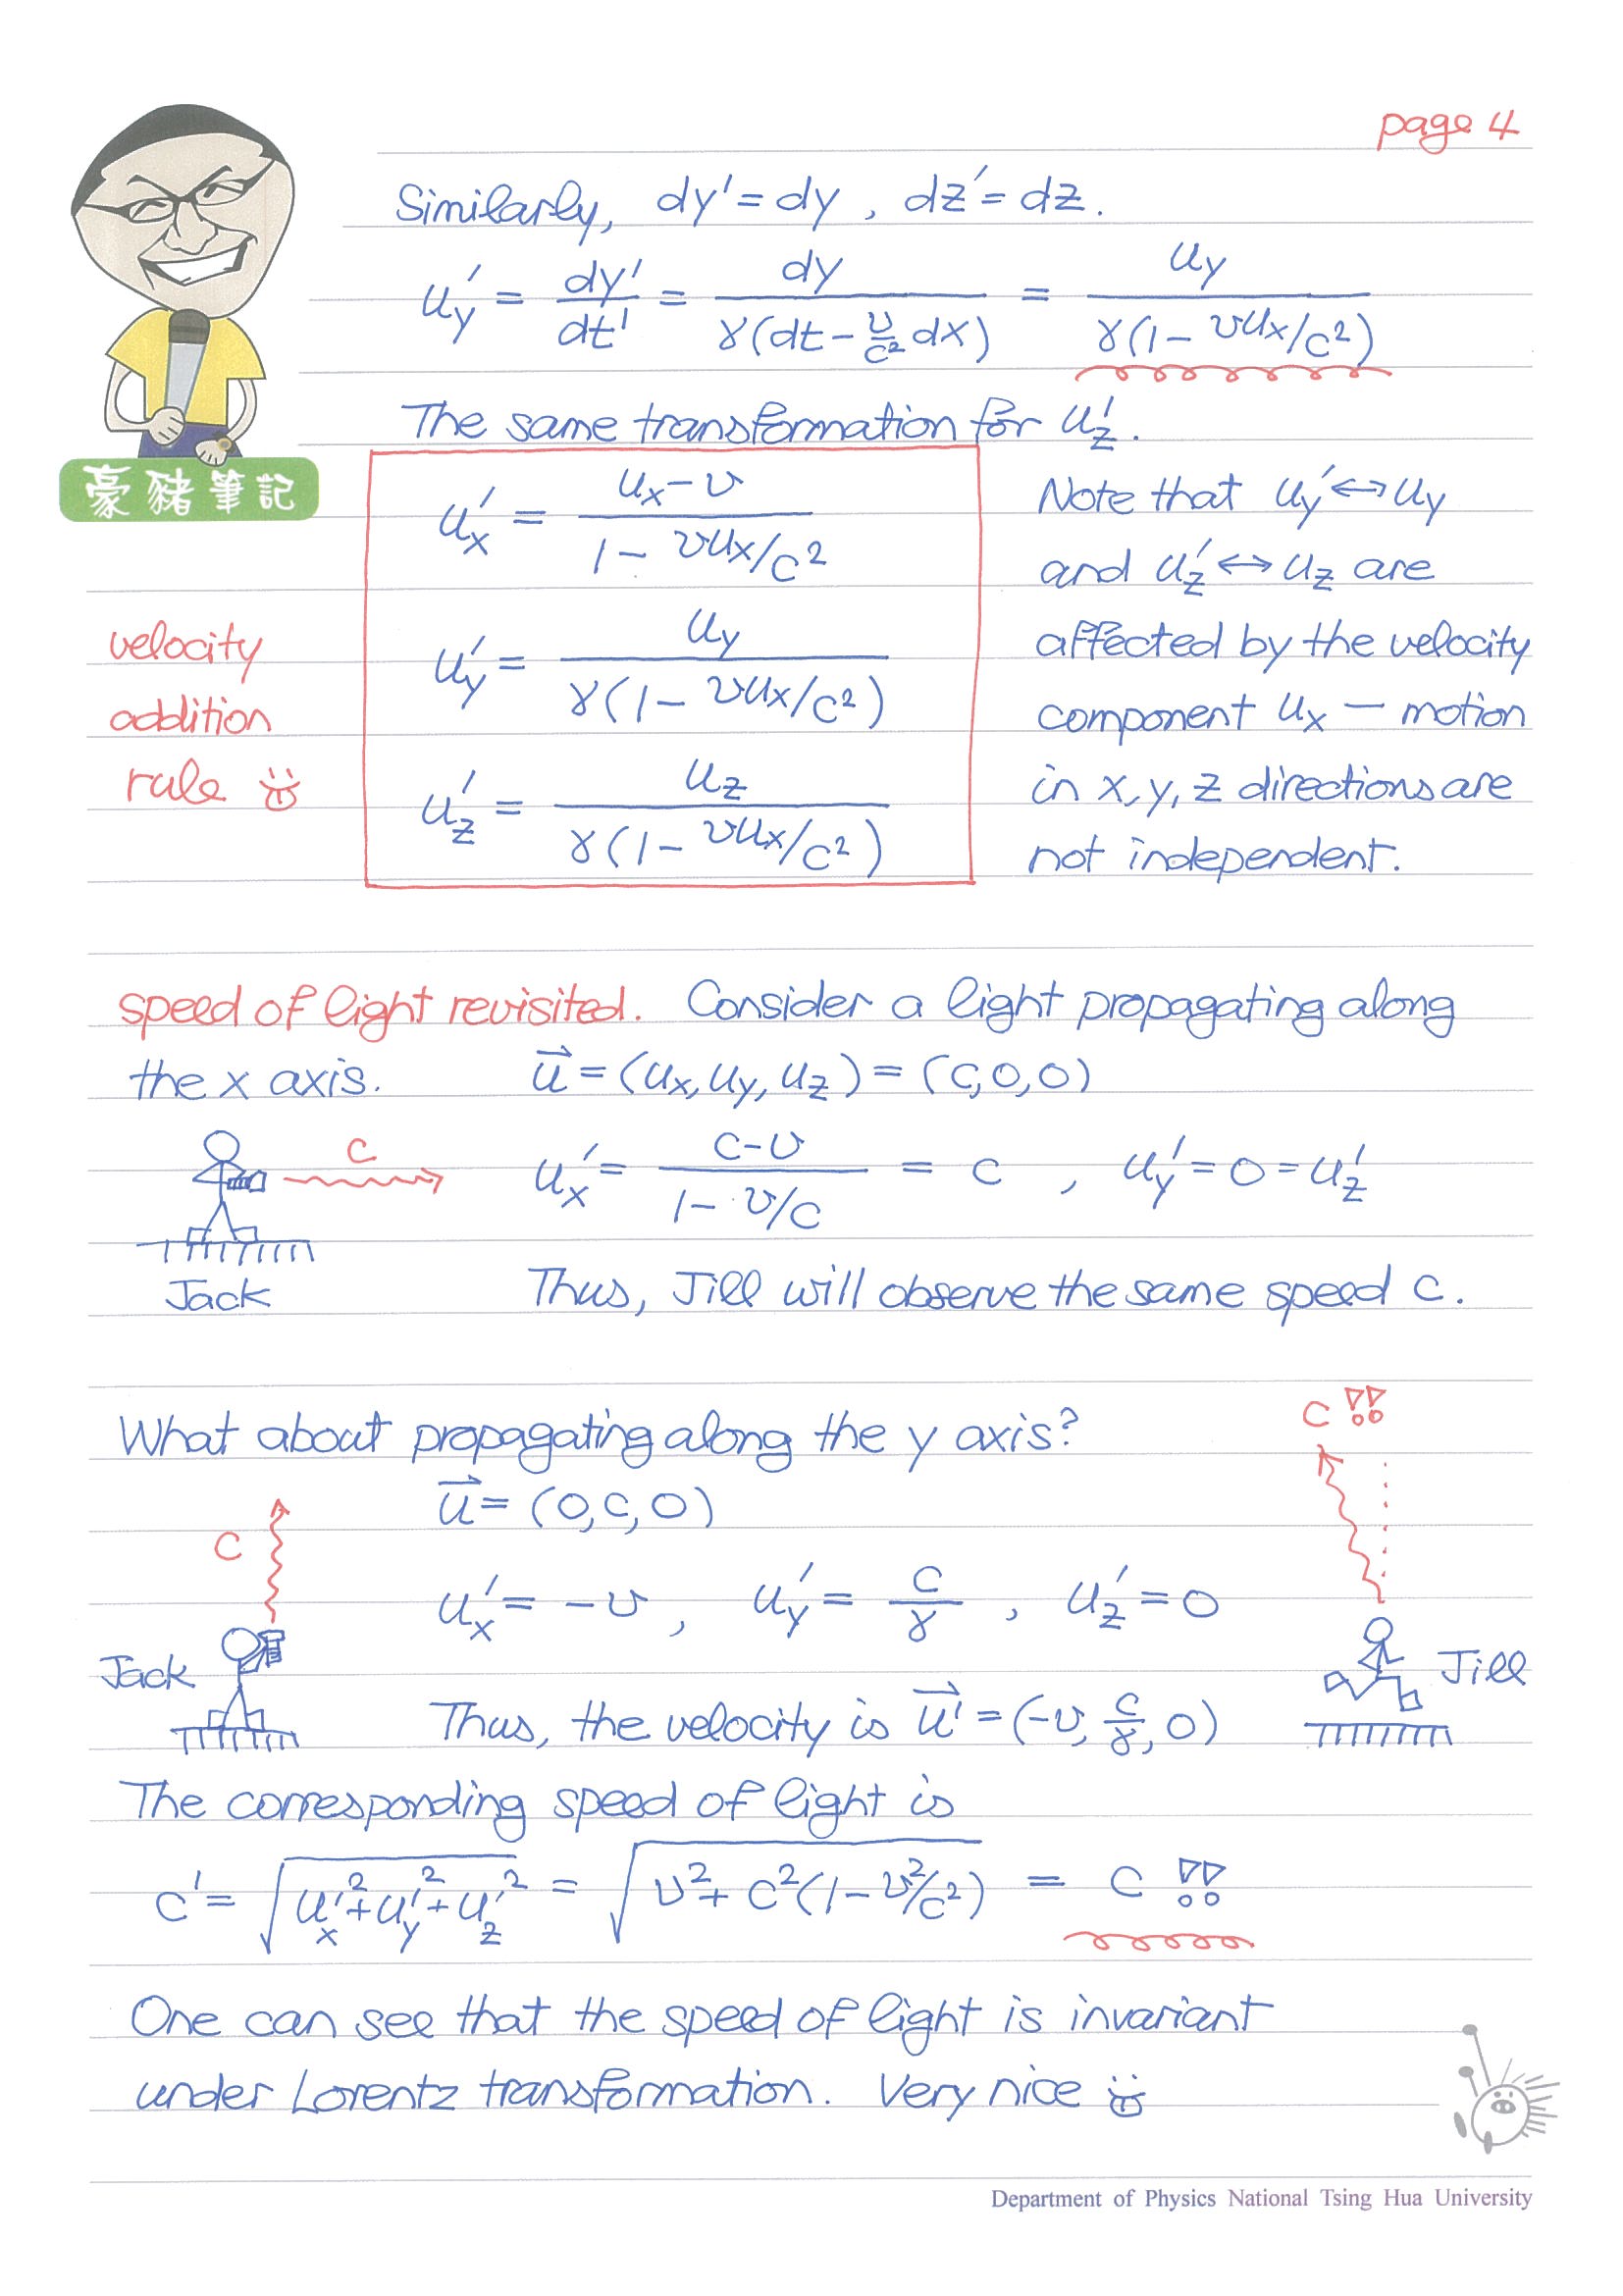 page 4
Similarly, dy' = dy , dz' = dz.
u_y' = dy'/dt' = dy / γ(dt - v/c² dx) = u_y / γ(1 - vu_x/c²)
The same transformation for u_z'.
豪豬筆記
velocity
addition
rule
u_x' = (u_x - v) / (1 - vu_x/c²)
u_y' = u_y / γ(1 - vu_x/c²)
u_z' = u_z / γ(1 - vu_x/c²)
Note that u_y' ↔ u_y
and u_z' ↔ u_z are
affected by the velocity
component u_x — motion
in x, y, z directions are
not independent.
speed of light revisited. Consider a light propagating along
the x axis. u⃗ = (u_x, u_y, u_z) = (c, 0, 0)
c
u_x' = (c - v) / (1 - v/c) = c , u_y' = 0 = u_z'
Jack
Thus, Jill will observe the same speed c.
What about propagating along the y axis?
c !!
u⃗ = (0, c, 0)
c
u_x' = -v , u_y' = c/γ , u_z' = 0
Jack
Jill
Thus, the velocity is u⃗' = (-v, c/γ, 0)
The corresponding speed of light is
c' = √(u_x'² + u_y'² + u_z'²) = √(v² + c²(1 - v²/c²)) = c !!
One can see that the speed of light is invariant
under Lorentz transformation. Very nice
Department of Physics National Tsing Hua University